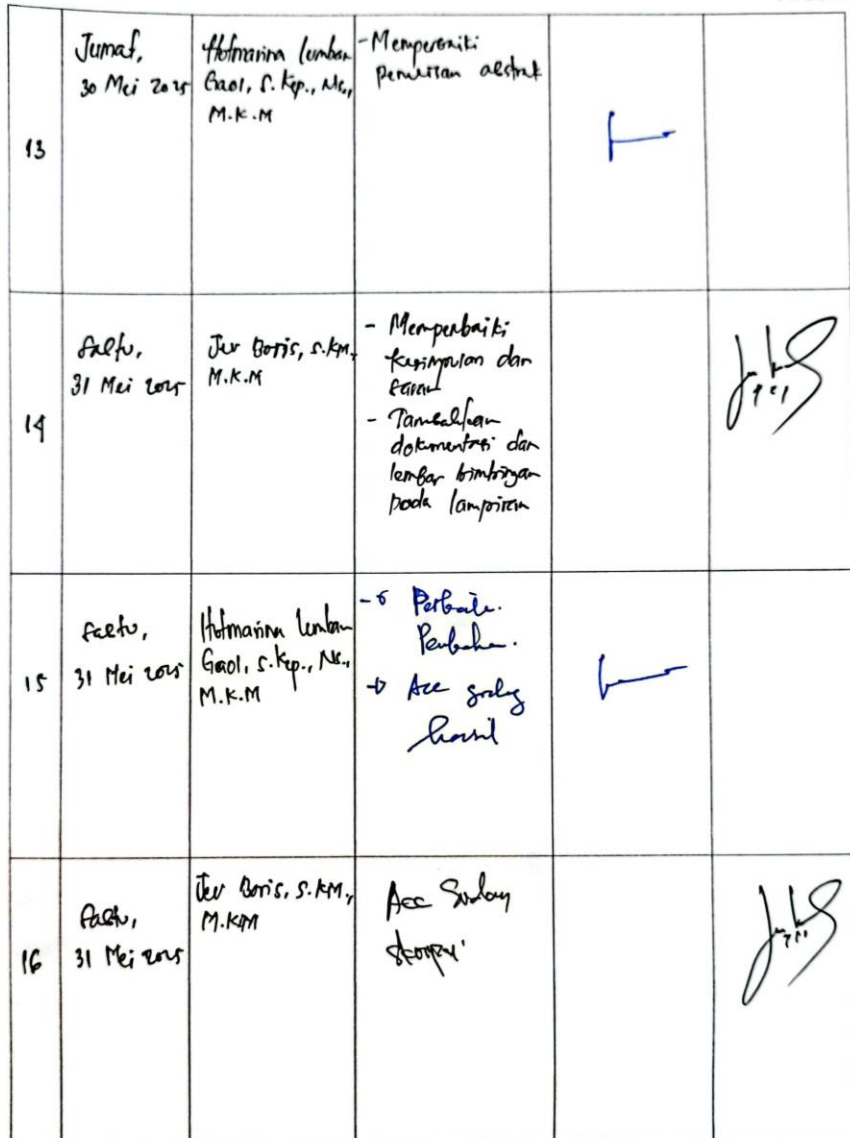 13
Jumat,
30 Mei 2025
Hotmarina Lumban
Gaol, S.Kep., Ns.,
M.K.M
- Memperbaiki
penulisan abstrak
14
Sabtu,
31 Mei 2025
Jev Boris, S.KM,
M.K.M
- Memperbaiki
kesimpulan dan
saran
- Tambahkan
dokumentasi dan
lembar bimbingan
pada lampiran
15
Sabtu,
31 Mei 2025
Hotmarina Lumban
Gaol, S.Kep., Ns.,
M.K.M
Perbaiki
Acc sidang
hasil
16
Sabtu,
31 Mei 2025
Jev Boris, S.KM.,
M.KM
Acc Sidang
skripsi